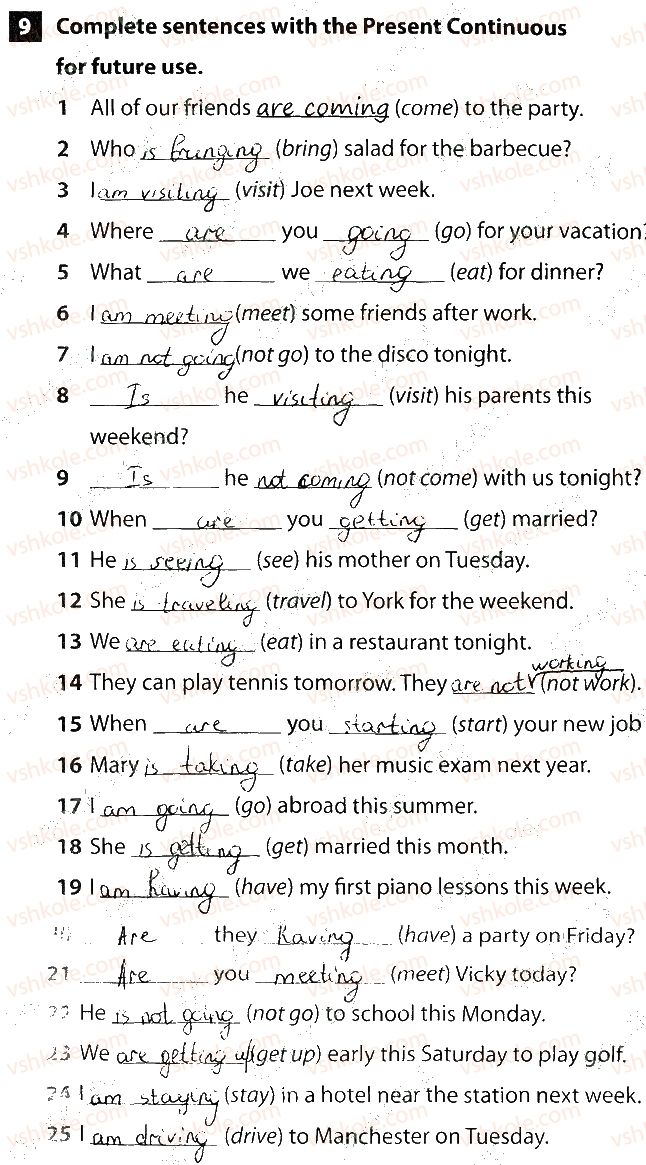 9 Complete sentences with the Present Continuous
for future use.
1 All of our friends are coming (come) to the party.
2 Who is bringing (bring) salad for the barbecue?
3 I am visiting (visit) Joe next week.
4 Where are you going (go) for your vacation?
5 What are we eating (eat) for dinner?
6 I am meeting (meet) some friends after work.
7 I am not going (not go) to the disco tonight.
8 Is he visiting (visit) his parents this
weekend?
9 Is he not coming (not come) with us tonight?
10 When are you getting (get) married?
11 He is seeing (see) his mother on Tuesday.
12 She is traveling (travel) to York for the weekend.
13 We are eating (eat) in a restaurant tonight.
working
14 They can play tennis tomorrow. They are not (not work).
15 When are you starting (start) your new job
16 Mary is taking (take) her music exam next year.
17 I am going (go) abroad this summer.
18 She is getting (get) married this month.
19 I am having (have) my first piano lessons this week.
Are they having (have) a party on Friday?
21 Are you meeting (meet) Vicky today?
22 He is not going (not go) to school this Monday.
23 We are getting up (get up) early this Saturday to play golf.
24 I am staying (stay) in a hotel near the station next week.
25 I am driving (drive) to Manchester on Tuesday.